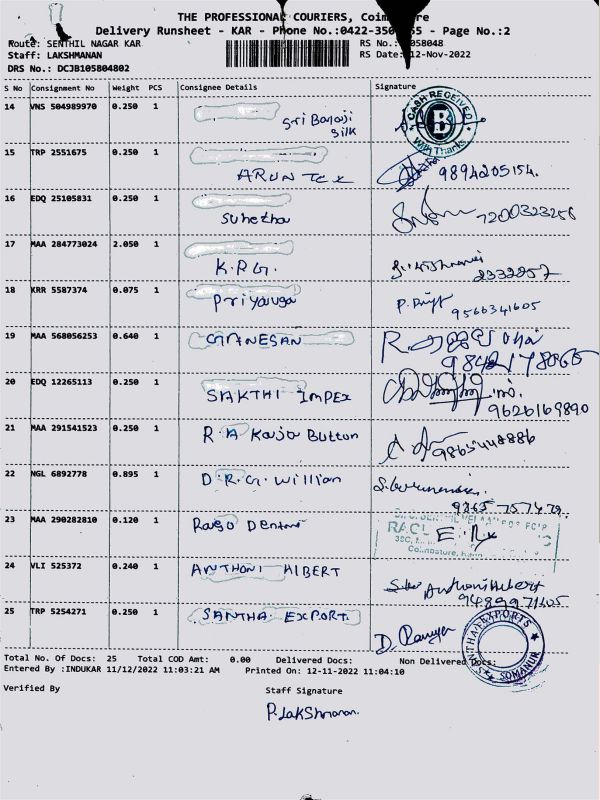 THE PROFESSIONAL COURIERS,
Delivery Runsheet - KAR - Phone No.:0422-350 - Page No.:2
Route: SENTHIL NAGAR KAR RS No.: 058048
Staff: LAKSHMANAN RS Date: 12-Nov-2022
DRS No.: DCJB105804802
S No Consignment No Weight PCS Consignee Details Signature
14 VNS 504989970 0.250 1 Sri Balaji Silk
CASH RECEIVED B With Thanks
15 TRP 2551675 0.250 1 ARUN Tex 9894205154.
16 EDQ 25105831 0.250 1 Suhetha 7200323256
17 MAA 284773024 2.050 1 K.P.G. 2332257
18 KRR 5587374 0.075 1 Priyanga 9566341605
19 MAA 568056253 0.640 1 GANESAN
20 EDQ 12265113 0.250 1 SAKTHI IMPEX 9626169890
21 MAA 291541523 0.250 1 R A Kaja Button 9865448886
22 NGL 6892778 0.895 1 D.R.G. Willian
23 MAA 290282810 0.120 1
Coimbatore,
24 VLI 525372 0.240 1 ANTHONI ALBERT
25 TRP 5254271 0.250 1 SANTHA EXPORT.
SANTHA EXPORTS SOMANUR
Total No. Of Docs: 25 Total COD Amt: 0.00 Delivered Docs: Non Delivered Docs:
Entered By :INDUKAR 11/12/2022 11:03:21 AM Printed On: 12-11-2022 11:04:10
Verified By Staff Signature
P. Lakshmanan.